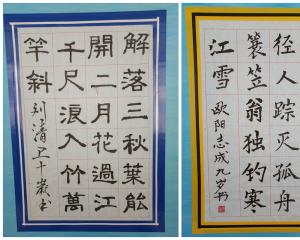 解落三秋葉能
開二月花過江
千尺浪入竹萬
竿斜
径人踪灭孤舟
蓑笠翁独钓寒
江雪 欧阳志成九岁书